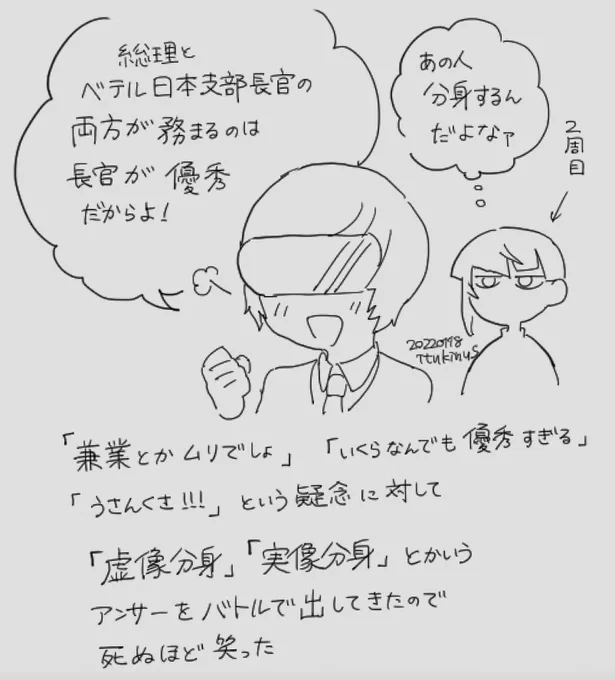 総理と
ベテル日本支部長官の
両方が務まるのは
長官が優秀
だからよ!
あの人
分身するん
だよなァ
2周目
20220118
ttukinus
「兼業とかムリでしょ」「いくらなんでも優秀すぎる」
「うさんくさ!!!」という疑念に対して
「虚像分身」「実像分身」とかいう
アンサーをバトルで出してきたので
死ぬほど笑った